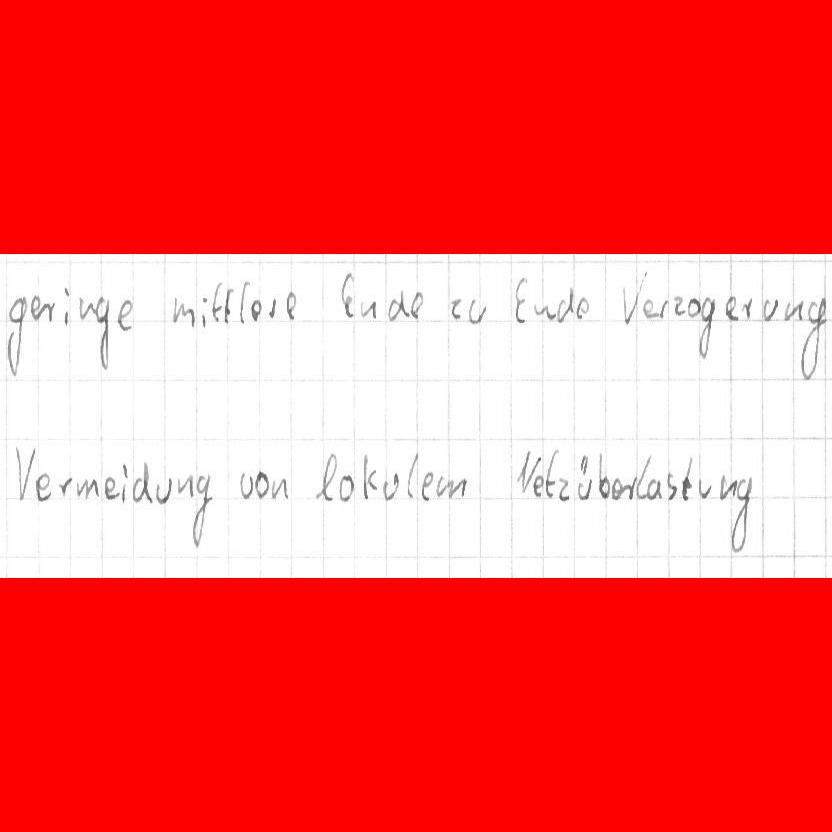 geringe mittlere Ende zu Ende Verzogerung
Vermeidung von lokalem Netzüberlastung